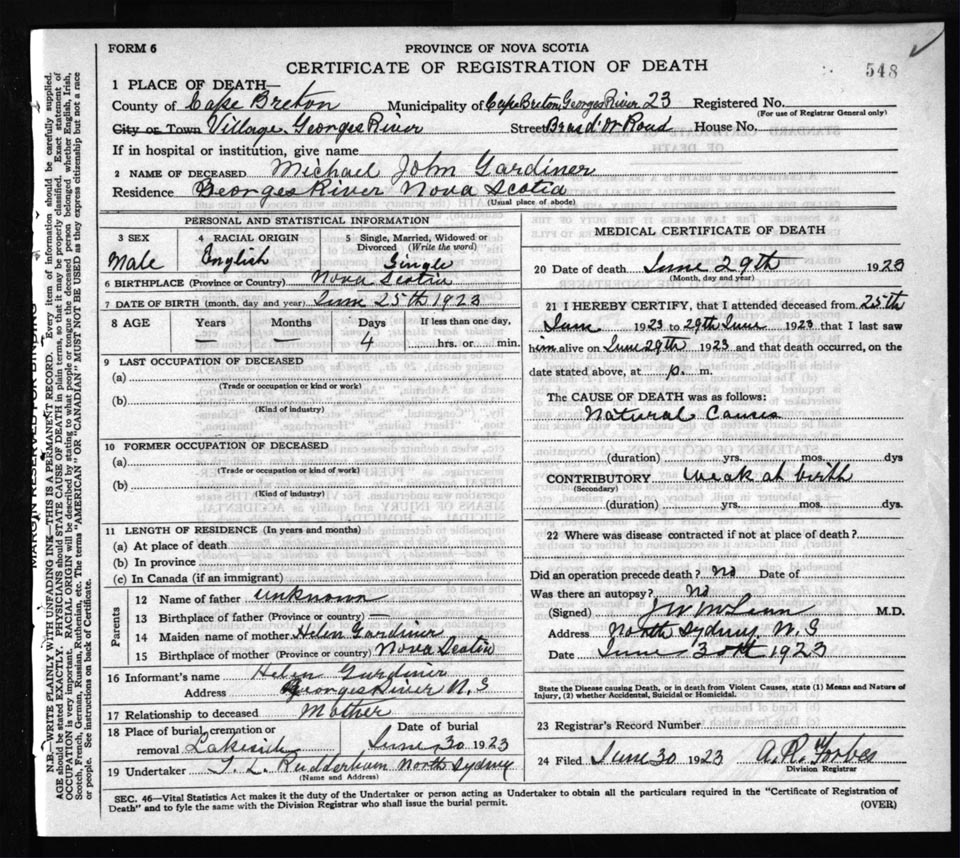 FORM 6
PROVINCE OF NOVA SCOTIA
CERTIFICATE OF REGISTRATION OF DEATH
548
1 PLACE OF DEATH—
County of Cape Breton Municipality of Cape Breton Georges River 23 Registered No.
(For use of Registrar General only)
City or Town Village Georges River Street Bras d'Or Road House No.
If in hospital or institution, give name
2 NAME OF DECEASED Michael John Gardiner
Residence Georges River Nova Scotia
(Usual place of abode)
PERSONAL AND STATISTICAL INFORMATION
3 SEX 4 RACIAL ORIGIN Single, Married, Widowed or Divorced (Write the word)
Male English Single
6 BIRTHPLACE (Province or Country) Nova Scotia
7 DATE OF BIRTH (month, day and year) June 25th 1923
8 AGE Years Months Days If less than one day,
— — 4 hrs. or min.
9 LAST OCCUPATION OF DECEASED
(a)
(Trade or occupation or kind of work)
(b)
(Kind of industry)
10 FORMER OCCUPATION OF DECEASED
(a)
(Trade or occupation or kind of work)
(b)
(Kind of industry)
11 LENGTH OF RESIDENCE (In years and months)
(a) At place of death
(b) In province
(c) In Canada (if an immigrant)
Parents
12 Name of father unknown
13 Birthplace of father (Province or country) —
14 Maiden name of mother Helen Gardiner
15 Birthplace of mother (Province or country) Nova Scotia
16 Informant's name Helen Gardiner
Address Georges River N.S
17 Relationship to deceased Mother
18 Place of burial, cremation or removal Lakeside Date of burial June 30 1923
19 Undertaker T. L. Rudderham North Sydney
(Name and Address)
MEDICAL CERTIFICATE OF DEATH
20 Date of death June 29th 1923
(Month, day and year)
21 I HEREBY CERTIFY, that I attended deceased from 25th
June 1923 to 29th June 1923 that I last saw
him alive on June 29th 1923 and that death occurred, on the
date stated above, at p. m.
The CAUSE OF DEATH was as follows:
Natural Causes
(duration) yrs. mos. dys
CONTRIBUTORY weak at birth
(Secondary)
(duration) yrs. mos. dys.
22 Where was disease contracted if not at place of death?
Did an operation precede death? No Date of
Was there an autopsy? No
(Signed) M.D.
Address North Sydney N.S
Date June 30th 1923
State the Disease causing Death, or in death from Violent Causes, state (1) Means and Nature of
Injury, (2) whether Accidental, Suicidal or Homicidal.
23 Registrar's Record Number
24 Filed June 30 1923 A. R. Forbes
Division Registrar
SEC. 46—Vital Statistics Act makes it the duty of the Undertaker or person acting as Undertaker to obtain all the particulars required in the "Certificate of Registration of
Death" and to fyle the same with the Division Registrar who shall issue the burial permit.
(OVER)
MARGIN RESERVED FOR BINDING
N.B.—WRITE PLAINLY WITH UNFADING INK—THIS IS A PERMANENT RECORD. Every item of information should be carefully supplied.
AGE should be stated EXACTLY. PHYSICIANS should STATE CAUSE OF DEATH in plain terms, so that it may be properly classified. Exact statement of
OCCUPATION is very important. RACIAL ORIGIN will be described by stating to what people or tongue the deceased person belonged, whether English, Irish,
Scotch, French, German, Russian, Ruthenian, etc. The terms "AMERICAN" OR "CANADIAN" MUST NOT BE USED as they express citizenship but not a race
or people. See instructions on back of Certificate.